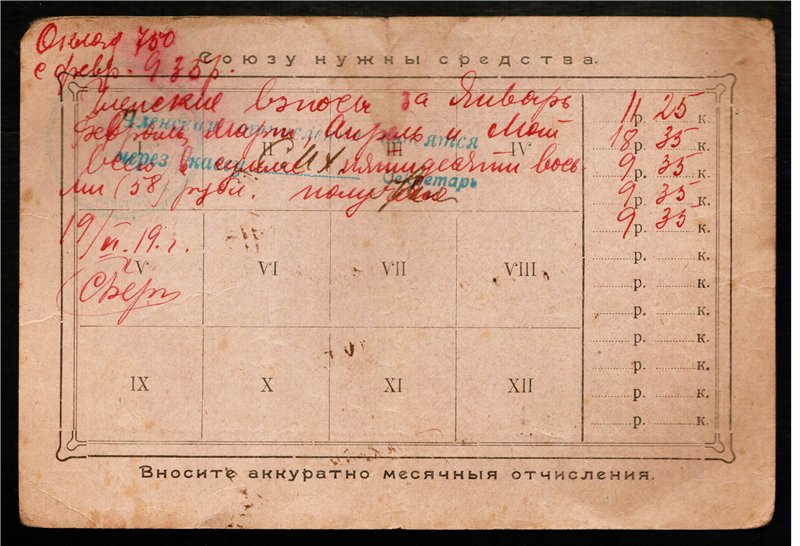 Оклад 750
с февр. 935 р.
Союзу нужны средства.
Членские взносы за Январь
Февраль, Март, Апрель и Май
всего в сумме пятидесяти вось-
ми (58) рубл. получено
19/VI 19 г.
Членские взносы
через
Секретарь
I II III IV
V VI VII VIII
IX X XI XII
11 р. 25 к.
18 р. 35 к.
9 р. 35 к.
9 р. 35 к.
9 р. 35 к.
р. к.
р. к.
р. к.
р. к.
р. к.
р. к.
р. к.
Вносите аккуратно месячныя отчисления.